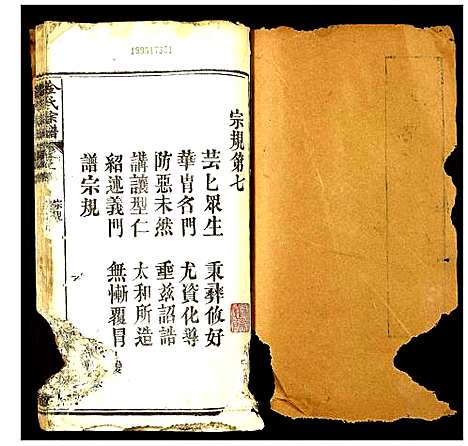 宗規第七
芸匕眾生 秉彝攸好
華胄名門 尤資化導
防惡未然 垂兹詔誥
講讓型仁 太和所造
紹述義門 無慚覆冒
譜宗規
金氏宗譜
宗規